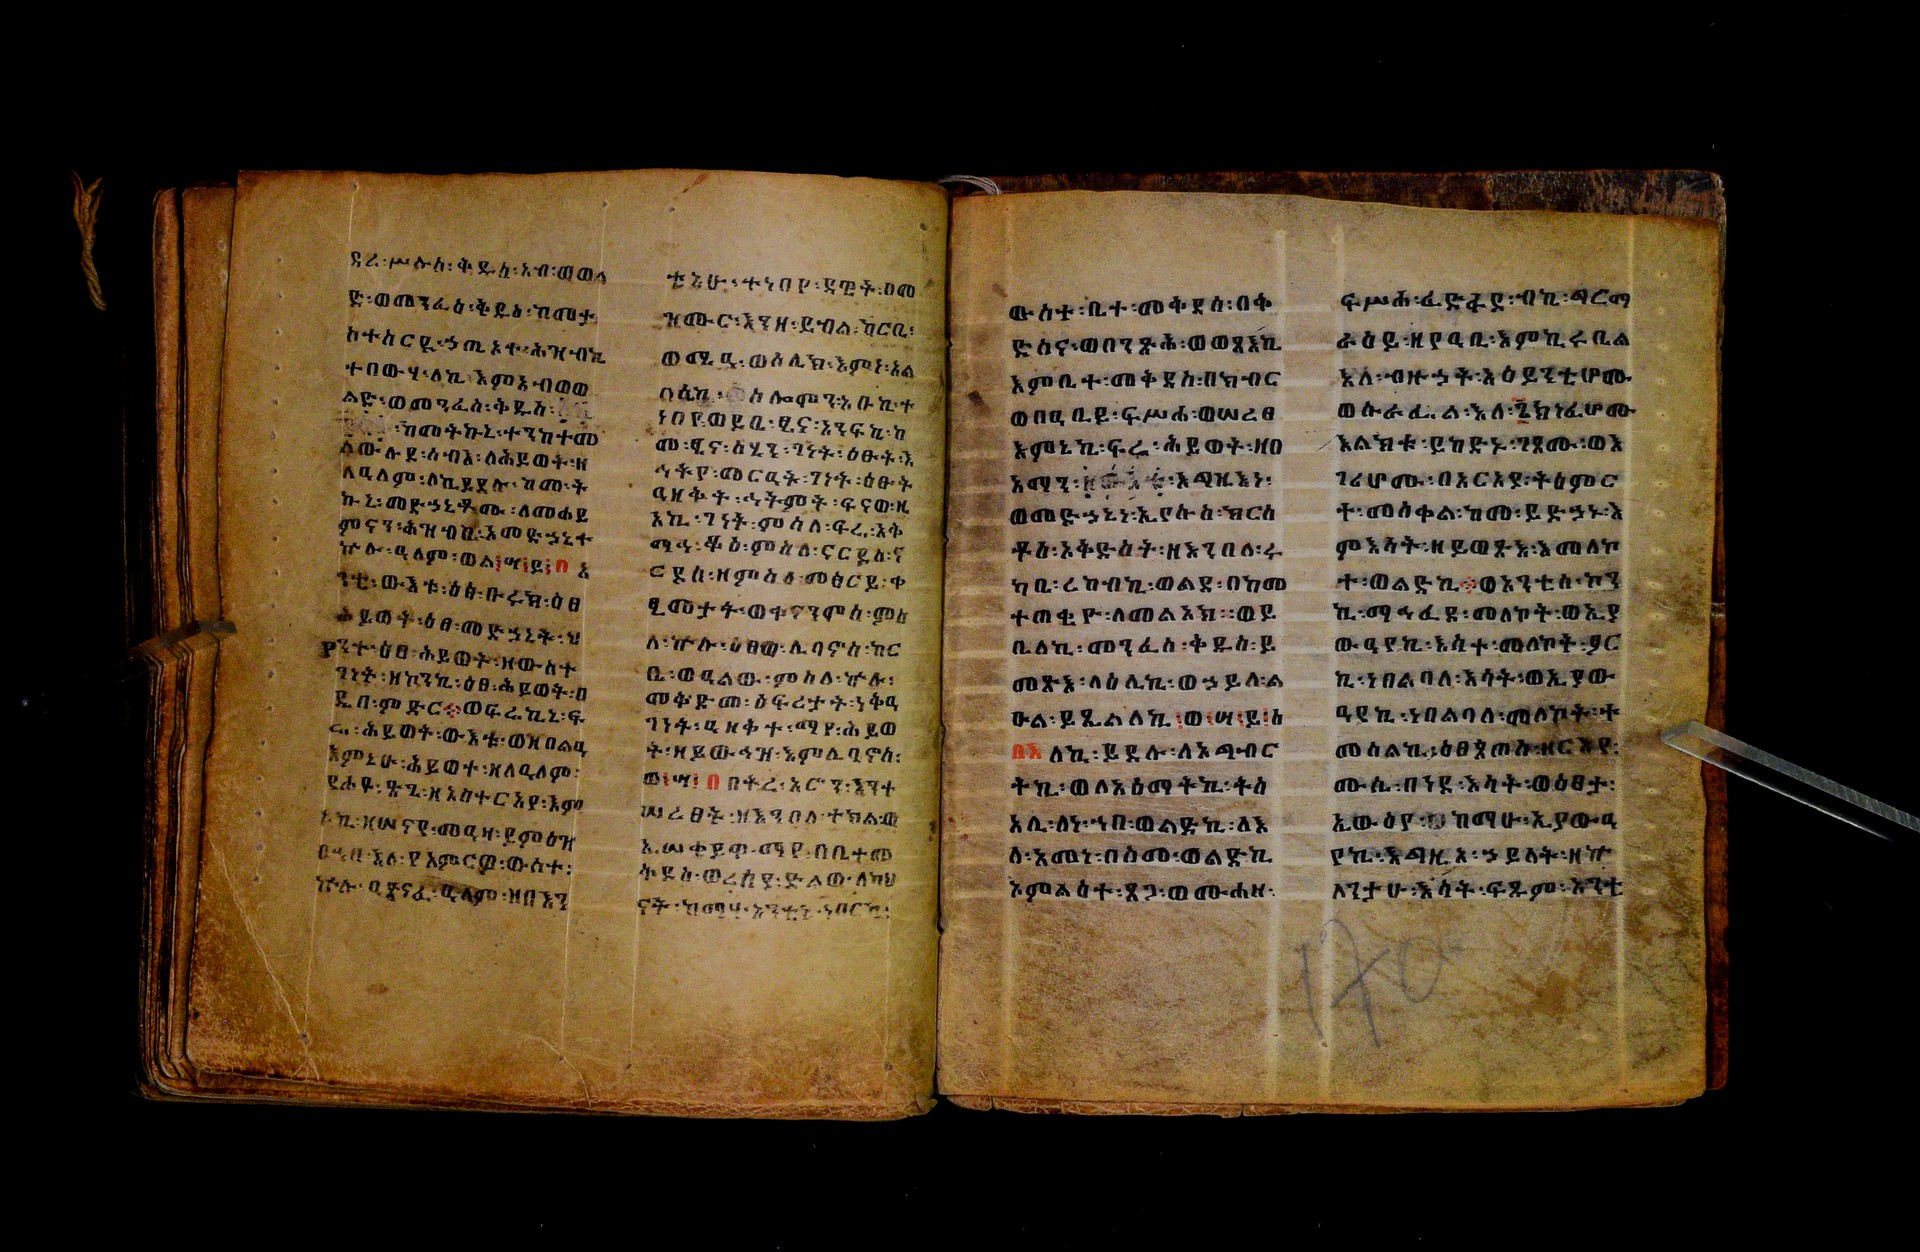 ደረ፡ሥሉስ፡ቅዱስ፡አብ፡ወወል
ድ፡ወመንፈስ፡ቅዱስ፡ከመታ
ስተስርዪ፡ኃጢአተ፡ሕዝብኪ
ተበውሃ፡ለኪ፡እምአብ፡ወወ
ልድ፡ወመንፈስ፡ቅዱስ፡
ከመትኩኒ፡ተንከተመ
ለውሉደ፡ሰብእ፡ለሕይወት፡ዘ
ለዓለም፡ለኪ፡ይደሉ፡ከመ፡ት
ኩኒ፡መድኃኒቶሙ፡ለመሐይ
ምናን፡ሕዝብኪ፡እመድኃኒተ
ኵሉ፡ዓለም፡ወል፤ሣ፤ይ፤በ እ
ንቲ፡ውእቱ፡ዕፀ፡ቡሩክ፡ዕፀ
ሕይወት፡ዕፀ፡መድኃኒት፡ህ
የንተ፡ዕፀ፡ሕይወት፡ዘውስተ
ገነት፡ዘኮንኪ፡ዕፀ፡ሕይወት፡በ
ዲበ፡ምድር፡ወፍሬኪኒ፡ፍ
ሬ፡ሕይወት፡ውእቱ፡ወዘበልዓ
እምኔሁ፡ሕይወተ፡ዘለዓለም፡
የሐዩ፡ ዘአስተርአየ፡እም
ኔኪ፡ዘሠናየ፡መዓዛ፡ይምዕዝ
በዲበ፡እለ፡የአምርዎ፡ውስተ፡
ኵሉ፡ ዓለም፡ዘበእን
ቲኒሁ፡ተነበየ፡ዳዊት፡በመ
ዝሙር፡እንዘ፡ይብል፡ከርቤ፡
ወሚዓ፡ወሰሊክ፡እምነ፡አል
ባሲኪ፡ ሰሎሞን፡አቡኪ፡ተ
ነበየ፡ወይቤ፡ፄና፡አንፍኪ፡ከ
መ፡ፄና፡ስሂን፡ገነት፡ዕፁት፡እ
ኅትየ፡መርዓት፡ገነት፡ዕፁት
ዓዘቅት፡ኅትምት፡ፍናው፡ዚ
አኪ፡ገነት፡ምስለ፡ፍሬ፡አቅ
ማኅ፡ቆዕ፡ምስለ፡ናርዶስ፡ና
ርዶስ፡ዘምስለ፡መፅርይ፡ቀ
ፂመታት፡ወቀናንሞስ፡ምስ
ለ፡ኵሉ፡ዕፀወ፡ሊባኖስ፡ከር
ቤ፡ወዓልው፡ምስለ፡ኵሉ፡
መቅድመ፡ዕፍረታት፡ነቅዓ
ገነት፡ዓዘቅተ፡ማየ፡ሕይወ
ት፡ዘይውኅዝ፡እምሊባኖስ፡
ወ፤ሣ፤በ በትረ፡አሮን፡እንተ
ሠረፀት፡ዘእንበለ፡ተክል፡ወ
ኢሠቀይዋ፡ማየ፡በቤተ፡መ
ቅደስ፡ወረሰያ፡ድልው፡ለክህ
ናት፡ከማሃ፡አንቲኒ፡ነበርኪ፡
ውስተ፡ቤተ፡መቅደስ፡በቅ
ድስና፡ወበንጽሕ፡ወወጻእኪ
እምቤተ፡መቅደስ፡በክብር
ወበዓቢይ፡ፍሥሐ፡ወሠረፀ
እምኔኪ፡ፍሬ፡ሕይወት፡ዘበ
አማን፡ እግዚእነ፡
ወመድኃኒነ፡ኢየሱስ፡ክርስ
ቶስ፡ኦቅድስት፡ዘእንበለ፡ሩ
ካቤ፡ረከብኪ፡ወልደ፡በከመ
ተጠቂዮ፡ለመልአክ፡፡ወይ
ቤለኪ፡መንፈስ፡ቅዱስ፡ይ
መጽእ፡ላዕሌኪ፡ወኃይለ፡ል
ዑል፡ይጼልለኪ፤ወ፤ሣ፤ይ፤ስ
በእ ለኪ፡ይደሉ፡ለአግብር
ትኪ፡ወለአዕማትኪ፡ትስ
አሊ፡ለነ፡ኀበ፡ወልድኪ፡ለእ
ለ፡አመነ፡በስመ፡ወልድኪ
ኦምልዕተ፡ጸጋ፡ወሙሐዘ፡
ፍሥሐ፡ፈድፋደ፡ብኪ፡ግርማ
ራዕይ፡ዘየዓቢ፡እምኪሩቤል
እለ፡ብዙኃት፡አዕይንቲሆሙ
ወሱራፌል፡እለ፡፮ክነፊሆሙ
እልክቱ፡ይከድኑ፡ገጾሙ፡ወእ
ገሪሆሙ፡በአርአያ፡ትዕምር
ተ፡መስቀል፡ከመ፡ይድኃኑ፡እ
ምእሳት፡ዘይወጽእ፡እመለኮ
ት፡ወልድኪ፡ወአንቲሰ፡ኮን
ኪ፡ማኅፈደ፡መለኮት፡ወኢያ
ውዓየኪ፡እሳተ፡መለኮት፡ፆር
ኪ፡ነበልባለ፡እሳት፡ወኢያው
ዓየኪ፡ነበልባለ፡መለኮት፡ት
መስልኪ፡ዕፀ፡ጳጦስ፡ዘርእየ፡
ሙሴ፡በነደ፡እሳት፡ወዕፀታ፡
ኢውዕየ፡ ከማሁ፡ኢያውዓ
የኪ፡እግዚአ፡ኃይላት፡ዘኵ
ለንታሁ፡እሳት፡ፍጹም፡አንቲ
170